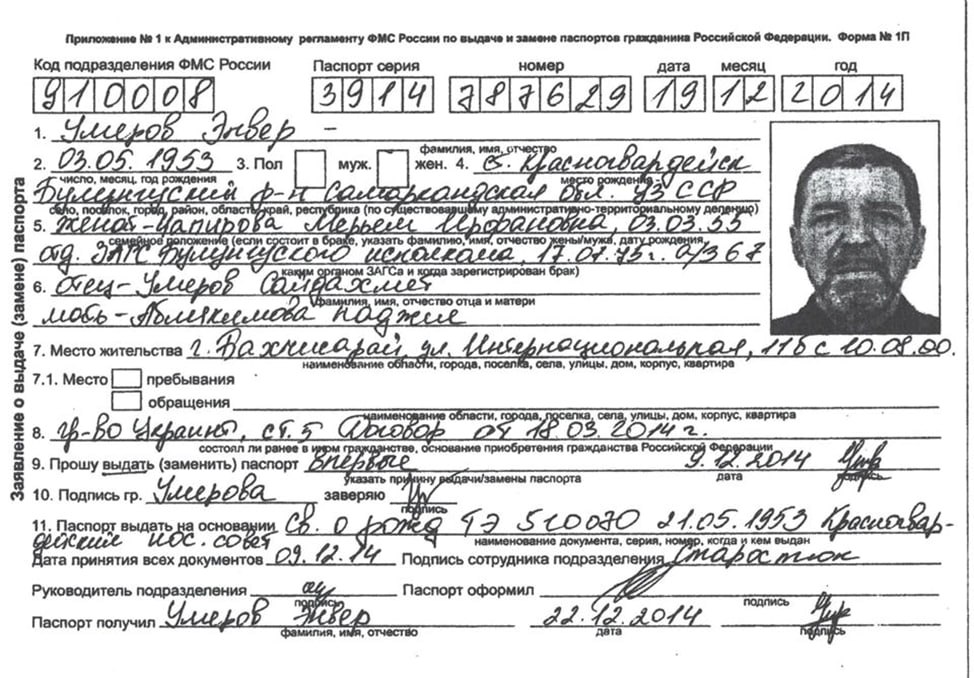 Приложение № 1 к Административному регламенту ФМС России по выдаче и замене паспортов гражданина Российской Федерации. Форма № 1П
Код подразделения ФМС России Паспорт серия номер дата месяц год
910008 3914 787629 19 12 2014
1. Умеров Энвер –
фамилия, имя, отчество
2. 03.05.1953 3. Пол муж. жен. 4. с. Красногвардейск
число, месяц, год рождения место рождения
Булунгурский р-н Самаркандская обл. Уз ССР
село, поселок, город, район, область, край, республика (по существовавшему административно-территориальному делению)
5. женат- Мерьем Ирфановна, 03.03.53
семейное положение (если состоит в браке, указать фамилию, имя, отчество жены/мужа, дату рождения,
отд. ЗАГС Булунгурского исполкома, 17.07.75г. а/з 67
каким органом ЗАГСа и когда зарегистрирован брак)
6. отец- Умеров Сайдахмет
фамилия, имя, отчество отца и матери
мать- Абликимова Наджие
7. Место жительства г. Бахчисарай, ул. Интернациональная, 11б с 10.08.00.
наименование области, города, поселка, села, улицы, дом, корпус, квартира
7.1. Место пребывания
обращения
наименование области, города, поселка, села, улицы, дом, корпус, квартира
8. гр-во Украины, ст. 5 Договор от 18.03.2014 г.
состоял ли ранее в ином гражданстве, основание приобретения гражданства Российской Федерации
9. Прошу выдать (заменить) паспорт впервые 9.12.2014
указать причину выдачи/замены паспорта дата подпись
10. Подпись гр. Умерова заверяю
подпись
11. Паспорт выдать на основании Св. о рожд ТЭ 510070 21.05.1953 Красногвар-
дейский пос. совет наименование документа, серия, номер, когда и кем выдан
Дата принятия всех документов 09.12.14 Подпись сотрудника подразделения Старостюк
Руководитель подразделения Паспорт оформил
подпись подпись
Паспорт получил Умеров Энвер 22.12.2014
фамилия, имя, отчество дата подпись
Заявление о выдаче (замене) паспорта